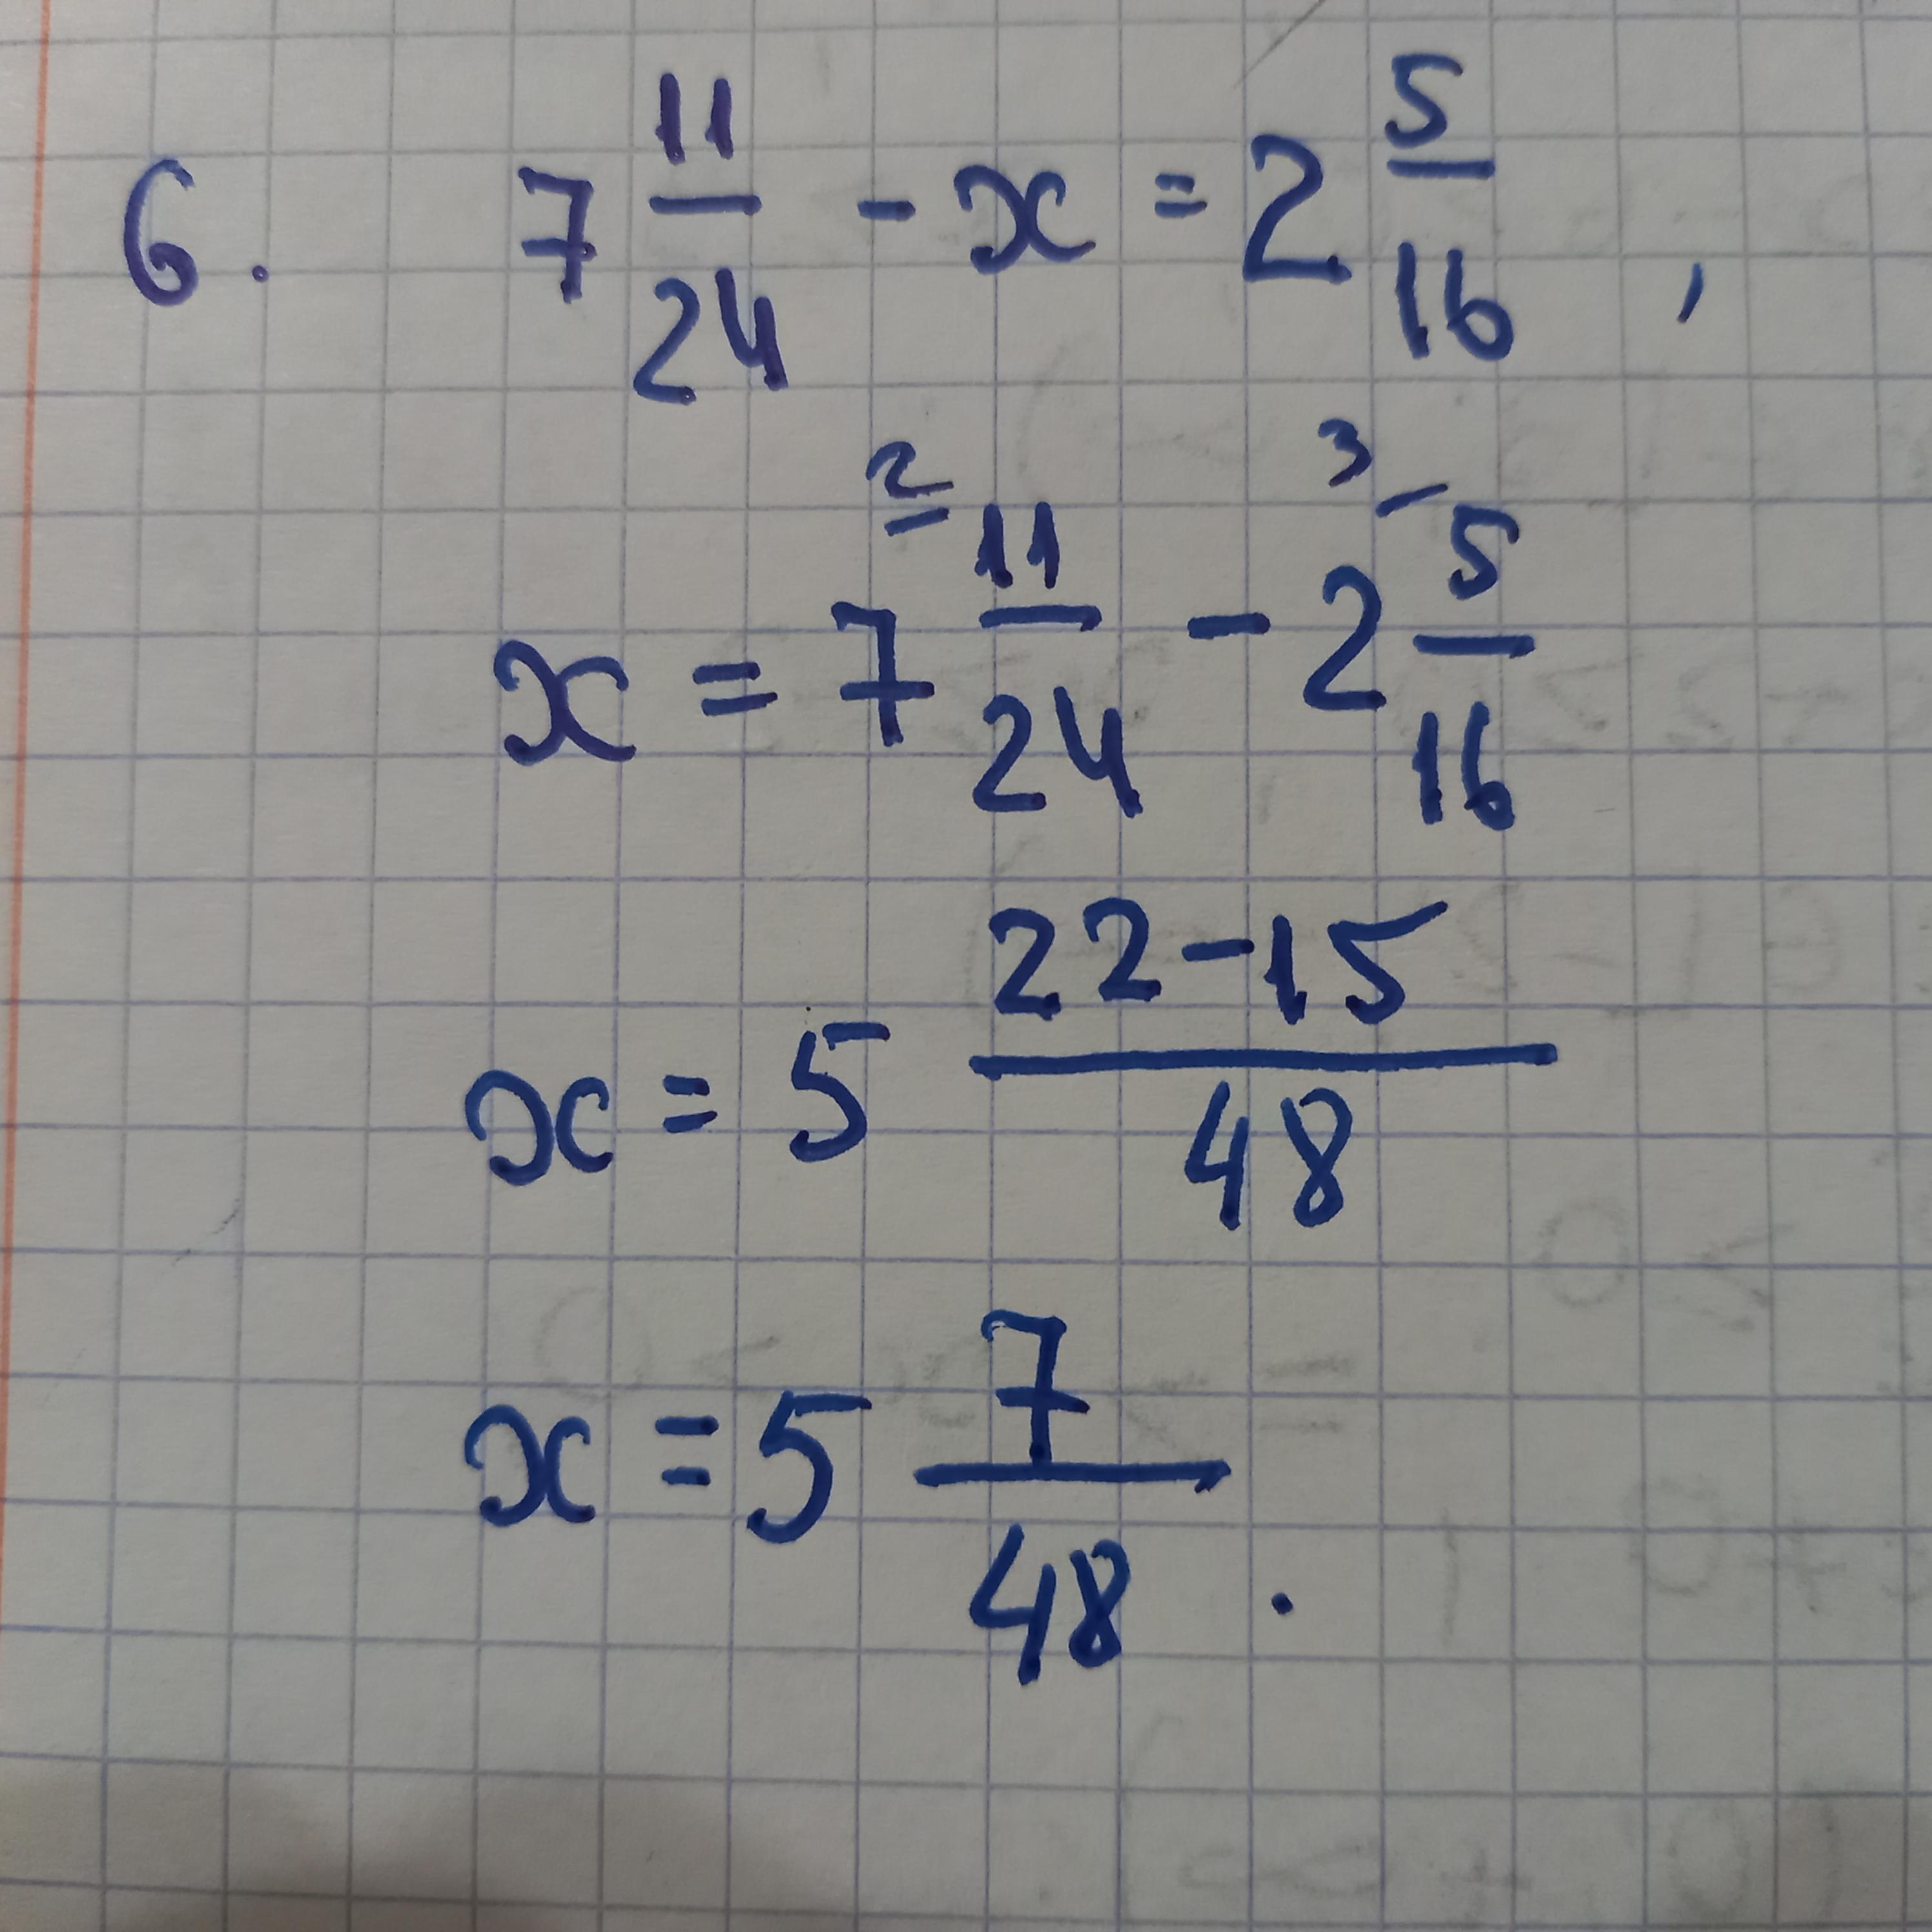 6. 7 11/24 - x = 2 5/16 ,
x = 7 2 11/24 - 2 3 5/16
x = 5 22-15/48
x = 5 7/48 .